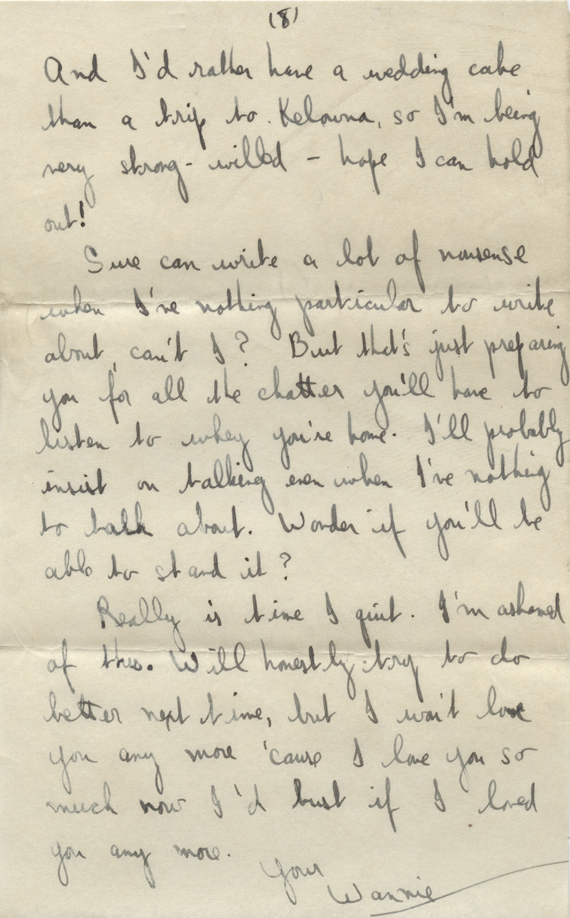 (8)
And I'd rather have a wedding cake
than a trip to Kelowna, so I'm being
very strong-willed – hope I can hold
out!
Sure can write a lot of nonsense
when I've nothing particular to write
about, can't I? But that's just preparing
you for all the chatter you'll have to
listen to whey you're home. I'll probably
insist on talking even when I've nothing
to talk about. Wonder if you'll be
able to stand it?
Really is time I quit. I'm ashamed
of this. Will honestly try to do
better next time, but I won't love
you any more 'cause I love you so
much now I'd bust if I loved
you any more.
Your
Wannie